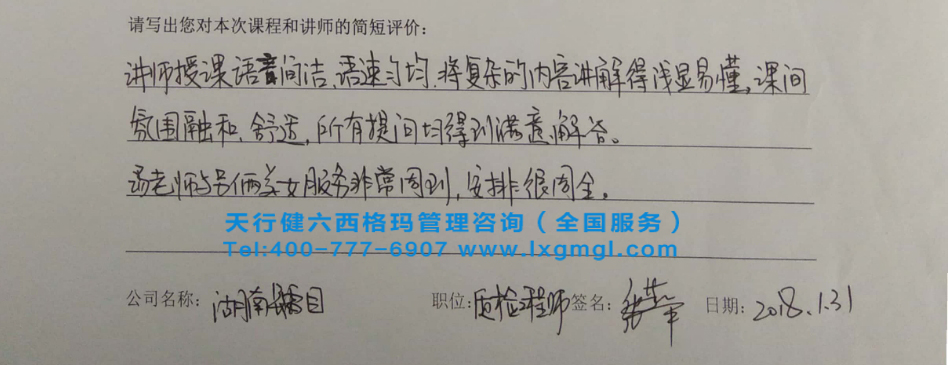 请写出您对本次课程和讲师的简短评价：
讲师授课语言简洁、语速匀均，将复杂的内容讲解得浅显易懂，课间
氛围融和、舒适，所有提问均得到满意解答。
老师与另俩美女服务非常周到，安排很周全。
天行健六西格玛管理咨询（全国服务）
Tel:400-777-6907 www.lxgmgl.com
公司名称： 湖南 职位：质检工程师 签名：张 日期：2018.1.31